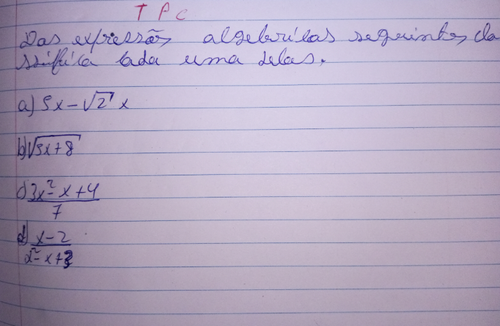 TPC
Das expressões algebricas seguintes cla
ssifica cada uma delas.
a) 5x-√2 x
b) √3x+8
c) 3x²-x+4
7
d) x-2
x²-x+3